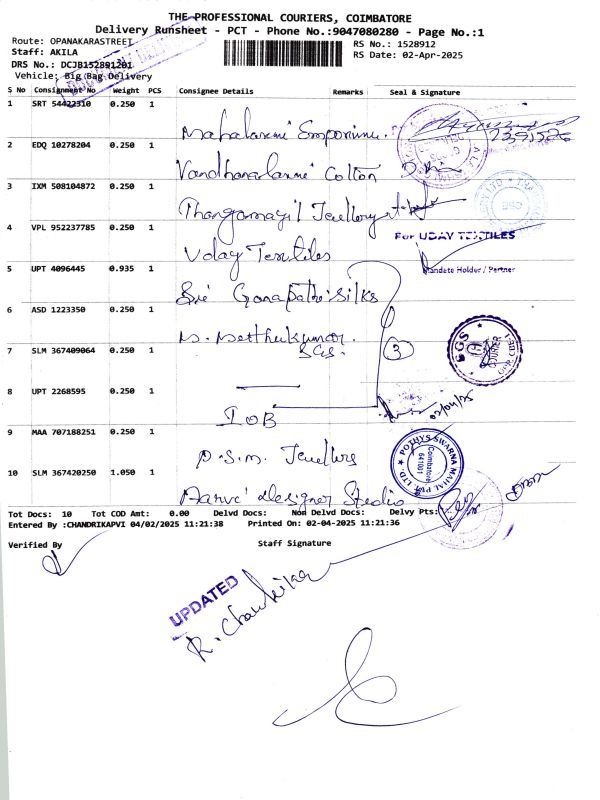 THE PROFESSIONAL COURIERS, COIMBATORE
Delivery Runsheet - PCT - Phone No.:9047080280 - Page No.:1
Route: OPANAKARASTREET
RS No.: 1528912
Staff: AKILA
RS Date: 02-Apr-2025
DRS No.: DCJB152891201
Vehicle: Big Bag Delivery
S No Consignment No Weight PCS Consignee Details Remarks Seal & Signature
1 SRT 54422310 0.250 1 Mahalaxmi Emporium.
2 EDQ 10278204 0.250 1 Vandhanalaxmi Cotton
3 IXM 508104872 0.250 1 Thangamayil Jewellery
4 VPL 952237785 0.250 1 Uday Textiles
For UDAY TEXTILES
Mandate Holder / Partner
5 UPT 4096445 0.935 1 Sri Ganapathi Silks
6 ASD 1223350 0.250 1
7 SLM 367409064 0.250 1 SGS. 3
SGS COURIER
8 UPT 2268595 0.250 1 IOB
02/04/25
9 MAA 707188251 0.250 1 P.S.M. Jewellers
POTHYS SWARNA MAHAL PVT. LTD.
Coimbatore 641001
10 SLM 367420250 1.050 1 designer Studio
Tot Docs: 10 Tot COD Amt: 0.00 Delvd Docs: Non Delvd Docs: Delvy Pts:
Entered By :CHANDRIKAPVI 04/02/2025 11:21:38 Printed On: 02-04-2025 11:21:36
Verified By Staff Signature
UPDATED
R. Chandrika